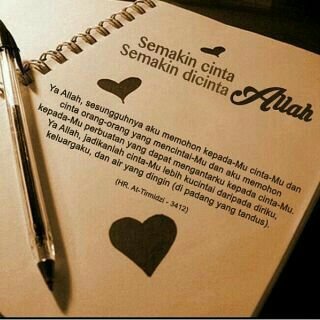 Semakin cinta
Semakin dicinta Allah
Ya Allah, sesungguhnya aku memohon kepada-Mu cinta-Mu dan
cinta orang-orang yang mencintai-Mu dan aku memohon
kepada-Mu perbuatan yang dapat mengantarku kepada cinta-Mu.
Ya Allah, jadikanlah cinta-Mu lebih kucintai daripada diriku,
keluargaku, dan air yang dingin (di padang yang tandus).
(HR. At-Tirmidzi - 3412)